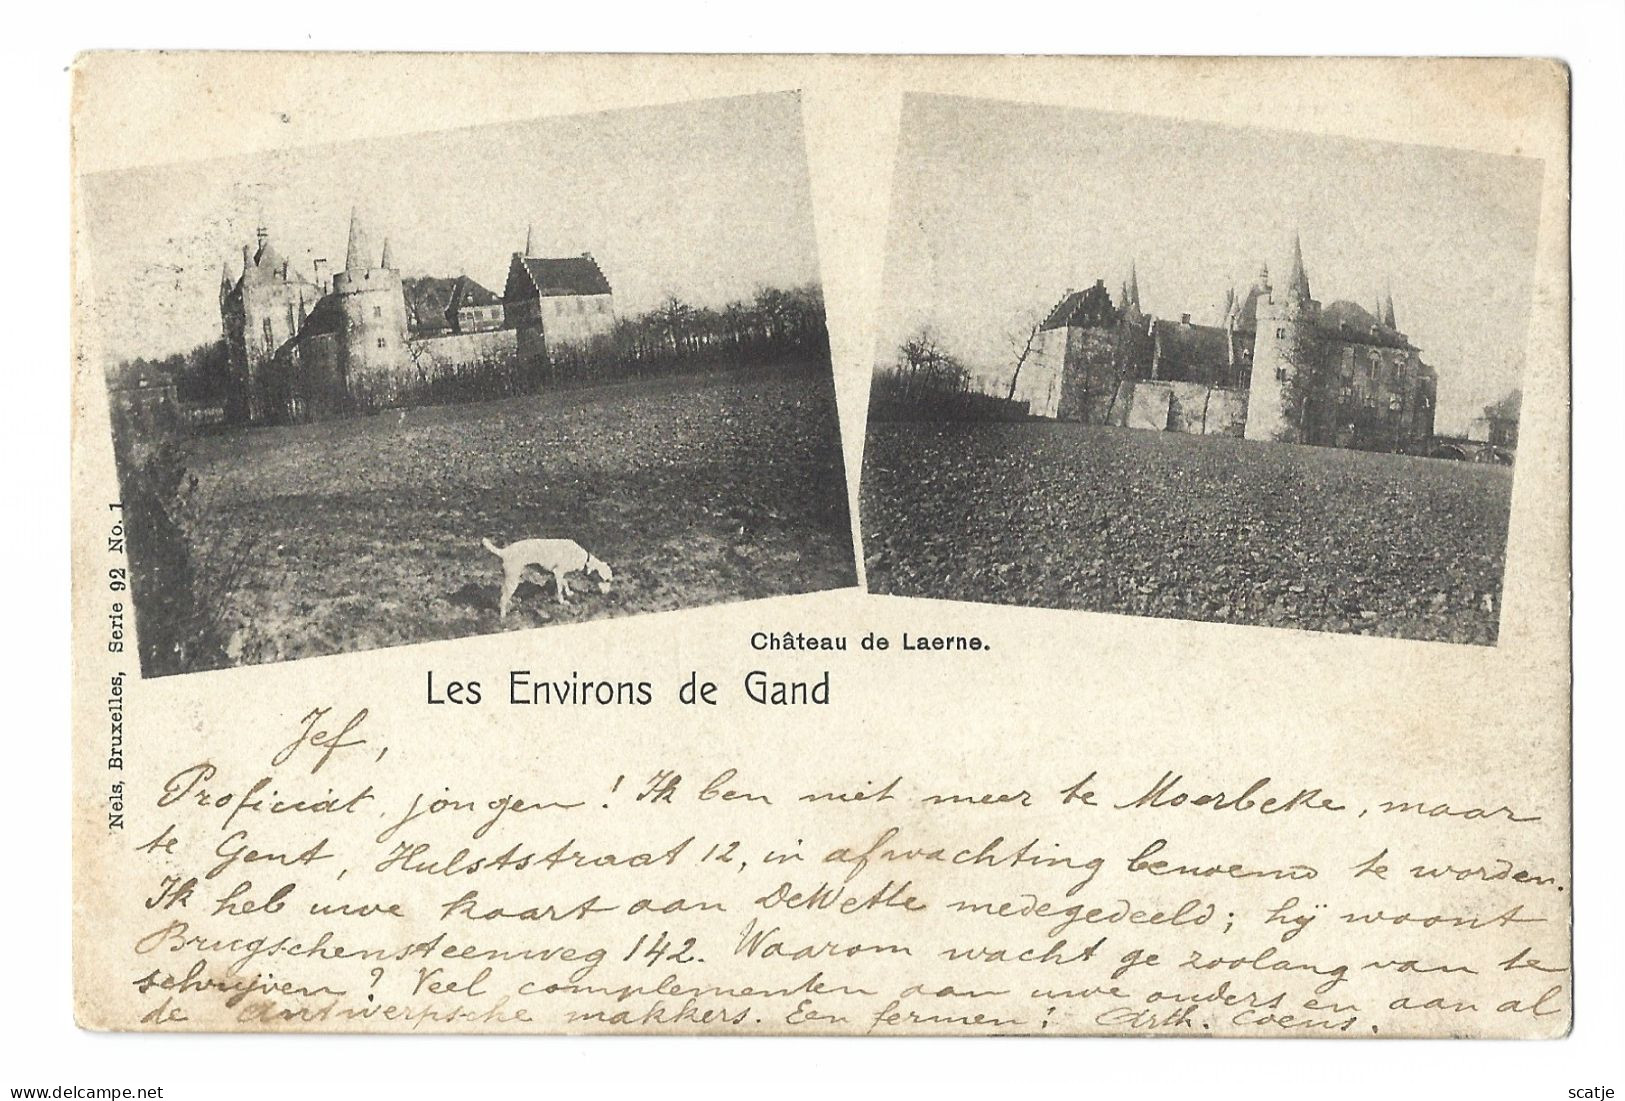 Château de Laerne.
Les Environs de Gand
Nels, Bruxelles, Serie 92 No. 1
Jef,
Proficiat, jongen! Ik ben niet meer te Moerbeke, maar
te Gent, Hulststraat 12, in afwachting benoemd te worden.
Ik heb uwe kaart aan DeWette medegedeeld; hij woont
Brugschensteenweg 142. Waarom wacht ge zoolang van te
schrijven? Veel complementen aan uwe ouders en aan al
de Antwerpsche makkers. Een fermen! Arth. Coens.
scatje